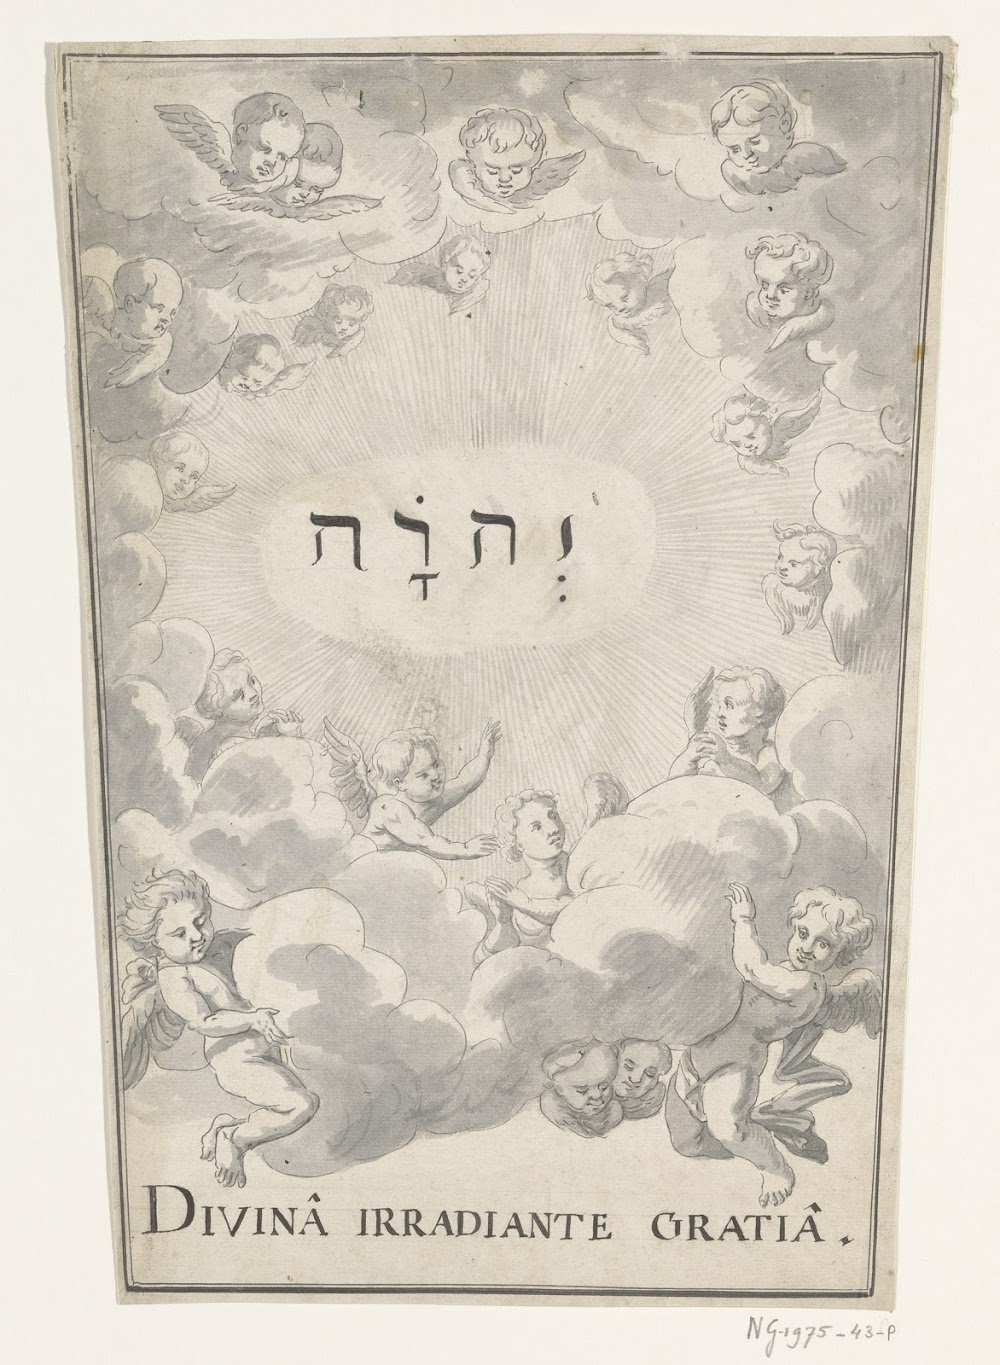 יְהוָֹה
DIVINÂ IRRADIANTE GRATIÂ.
NG-1975-43-P